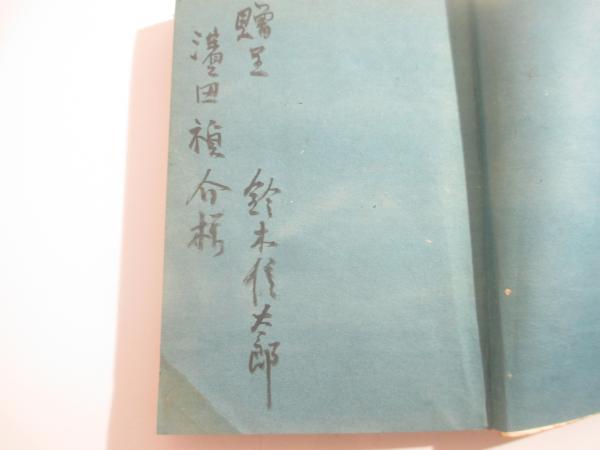 贈呈 鈴木信太郎
濱田禎介様